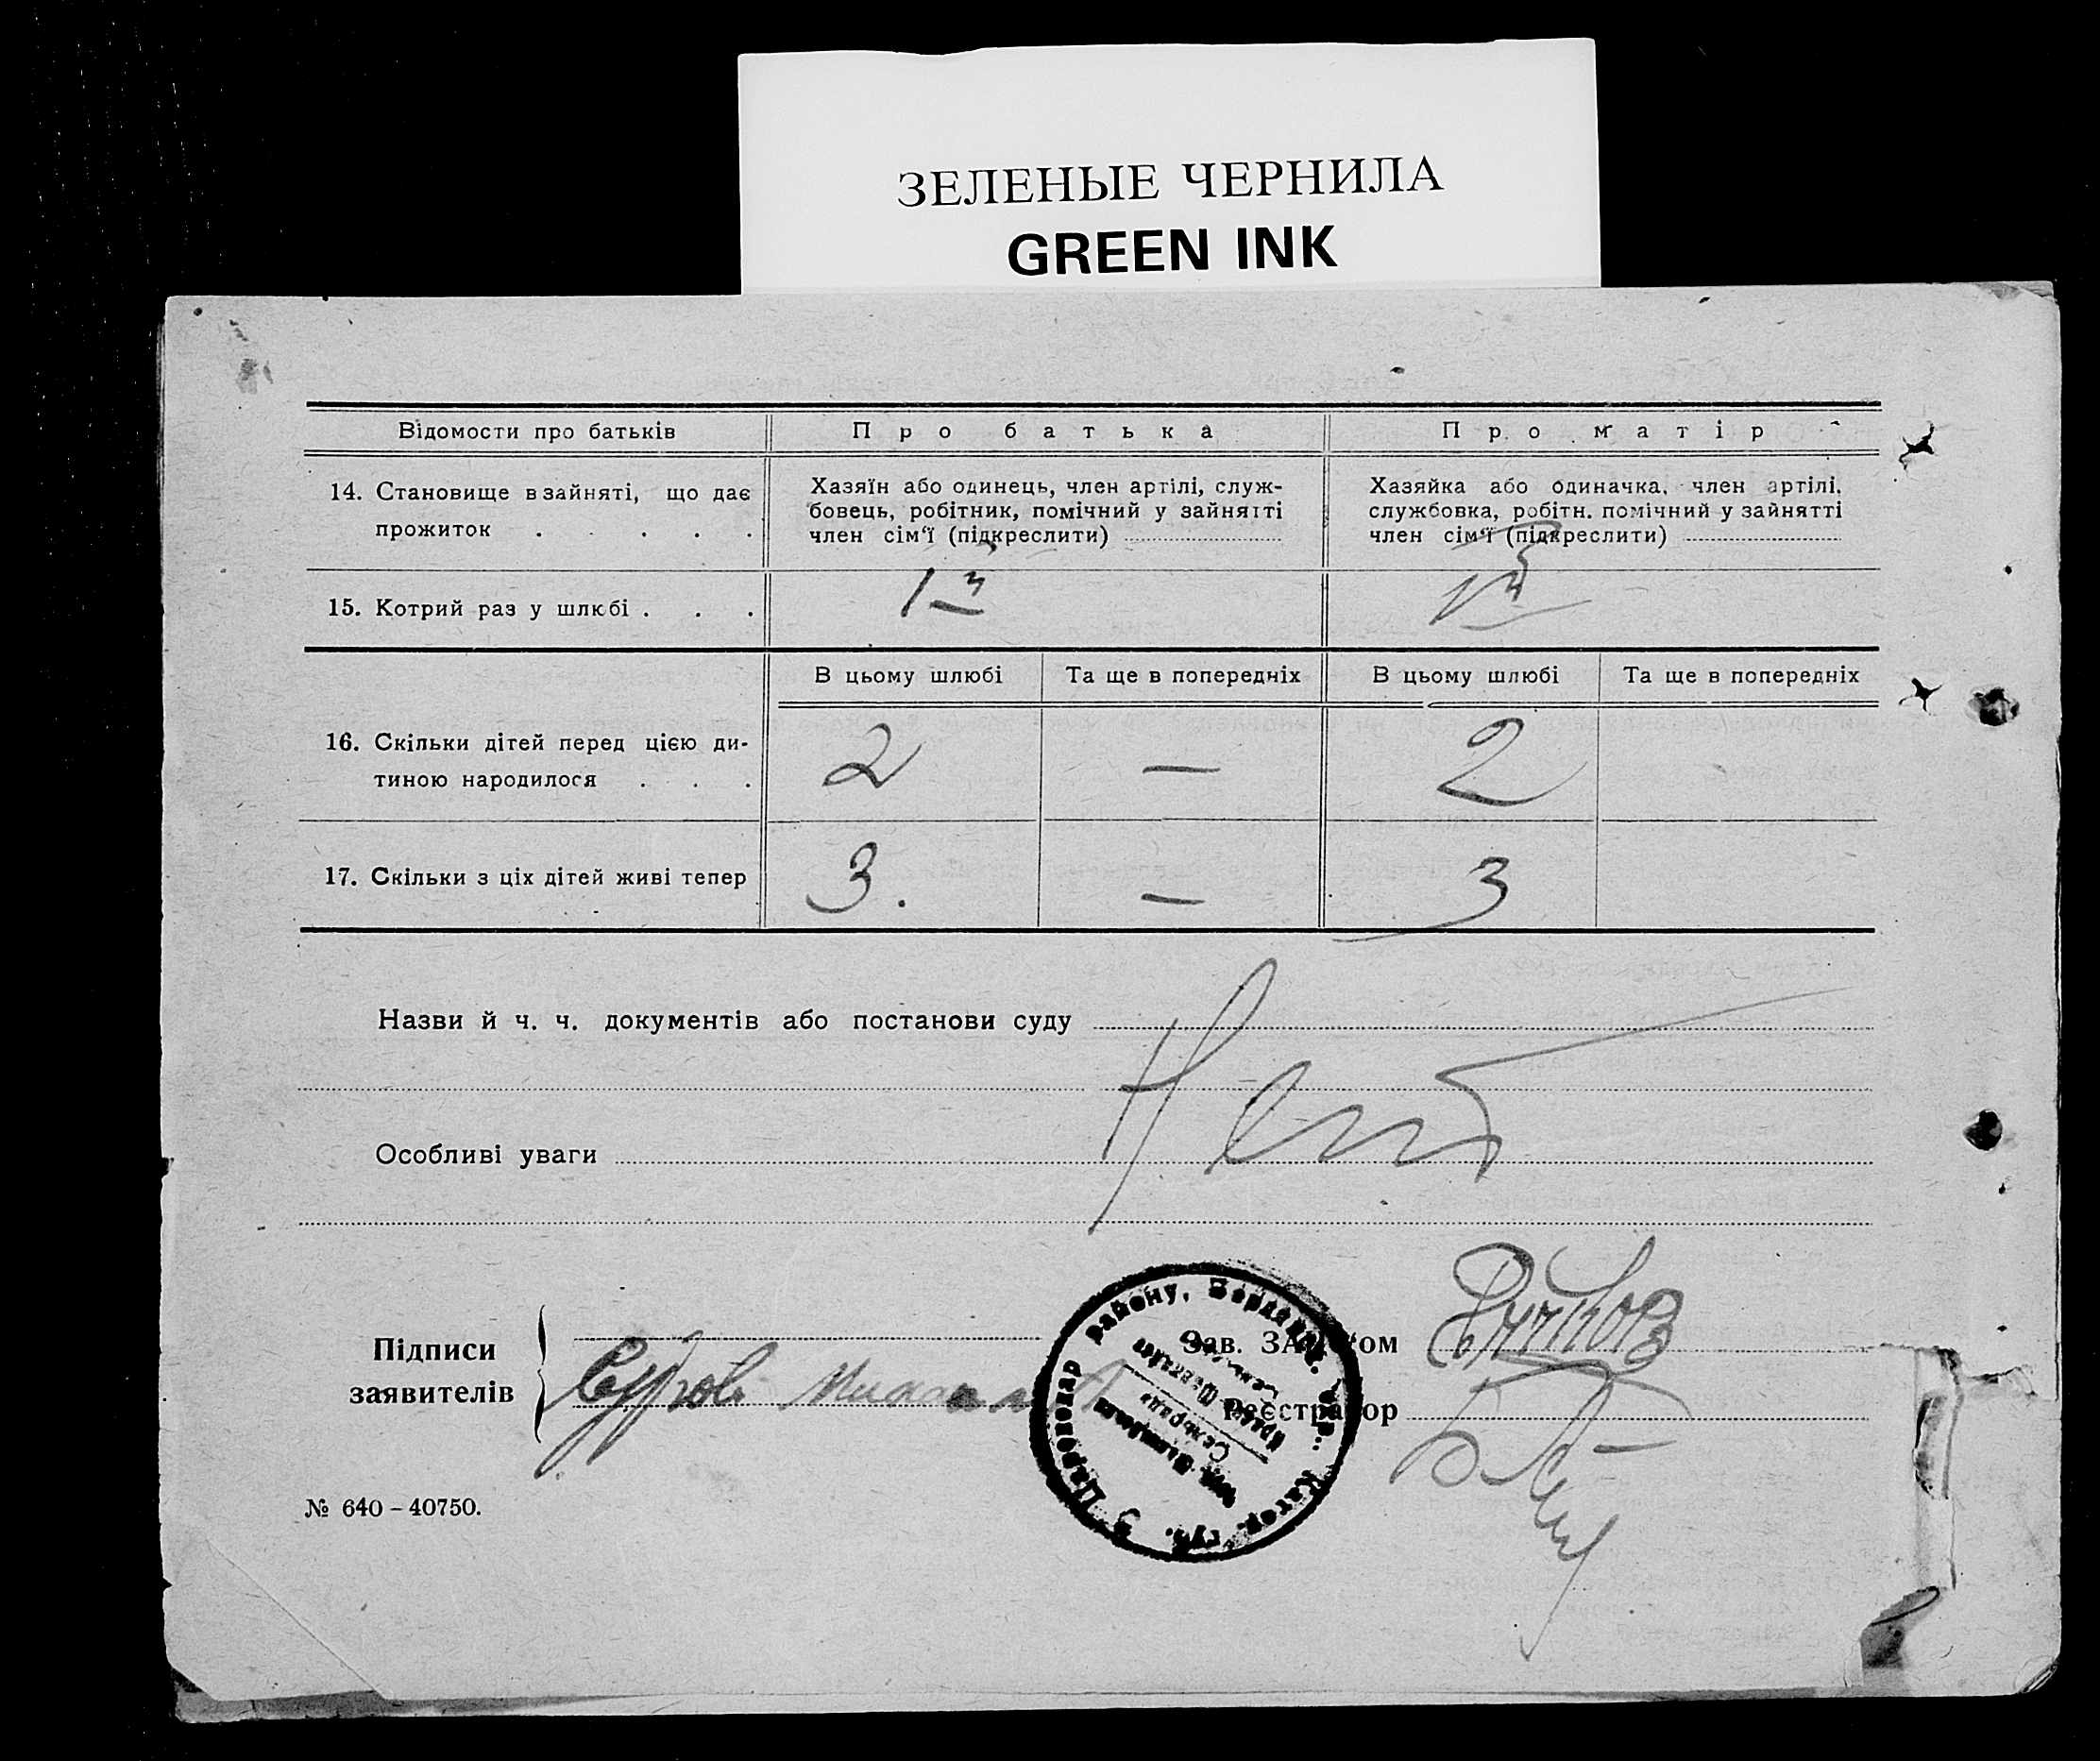 ЗЕЛЕНЫЕ ЧЕРНИЛА
GREEN INK
Відомости про батьків
Про батька
Про матір
14. Становище в зайняті, що дає
прожиток . . . . .
Хазяїн або одинець, член артілі, служ-
бовець, робітник, помічний у зайнятті
член сім'ї (підкреслити)
Хазяйка або одиначка, член артілі,
службовка, робітн. помічний у зайнятті
член сім'ї (підкреслити)
15. Котрий раз у шлюбі . . .
1й
1й
В цьому шлюбі
Та ще в попередніх
В цьому шлюбі
Та ще в попередніх
16. Скільки дітей перед цією ди-
тиною народилося . . .
2
—
2
17. Скільки з ціх дітей живі тепер
3.
—
3
Назви й ч. ч. документів або постанови суду
Нет
Особливі уваги
Підписи
заявителів
Зав. ЗАГС'ом
Реєстратор
Цареконстар Району, Бердянск. Окр. Катер. губ.
Сельрада
№ 640 – 40750.